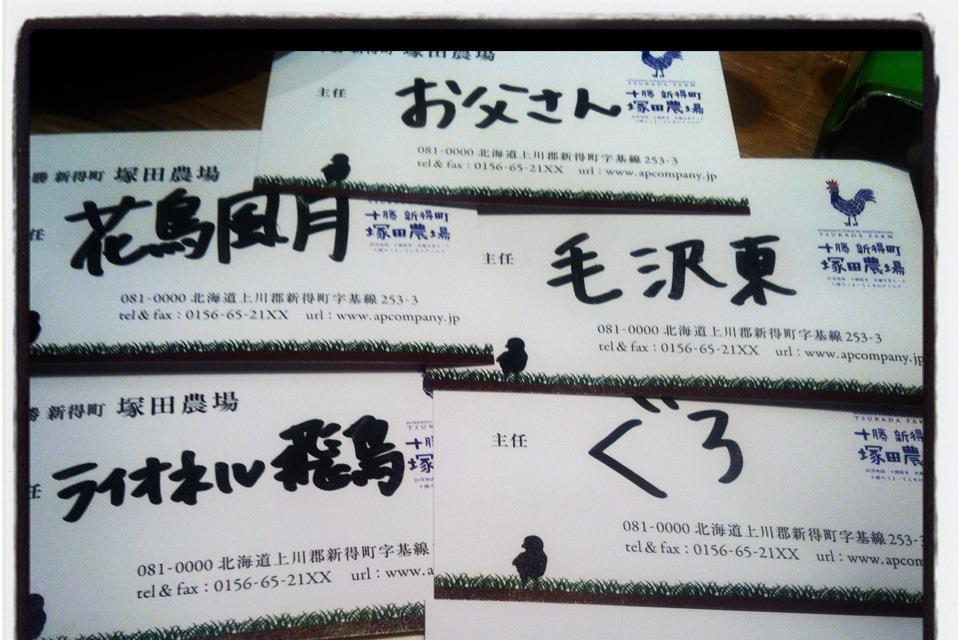 塚田農場
主任
お父さん
TSUKADA FARM
十勝 新得町
塚田農場
081-0000 北海道上川郡新得町字基線 253-3
tel & fax : 0156-65-21XX url : www.apcompany.jp
勝 新得町 塚田農場
任
花鳥風月
十勝 新得町
塚田農場
081-0000 北海道上川郡新得町字基線 253-3
tel & fax : 0156-65-21XX url : www.apcompany.jp
主任
毛沢東
TSUKADA FARM
十勝 新得町
塚田農場
081-0000 北海道上川郡新得町字基線 253-3
tel & fax : 0156-65-21XX url : www.apcompany.jp
勝 新得町 塚田農場
任
ライオネル飛鳥
十勝
塚
081-0000 北海道上川郡新得町字基線
tel & fax : 0156-65-21XX url : www.a
主任
ぐろ
TSUKADA FAR
十勝 新得
塚田農
081-0000 北海道上川郡新得町字基線 253-
tel & fax : 0156-65-21XX url : www.apcom